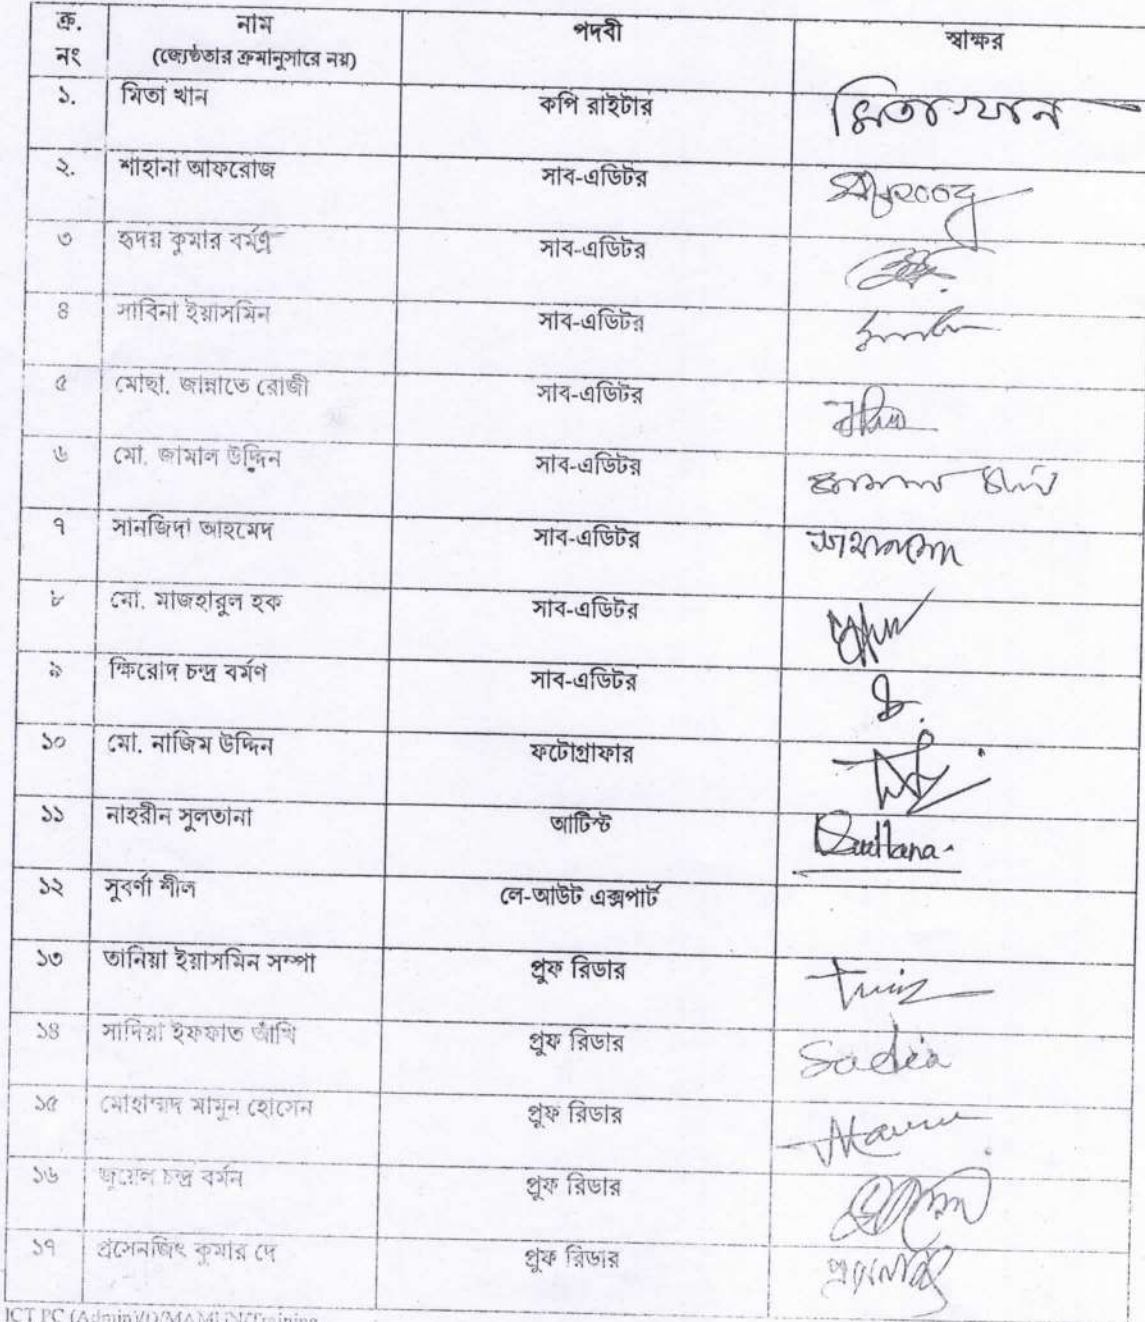 ক্র. নং নাম পদবী স্বাক্ষর
(জ্যেষ্ঠতার ক্রমানুসারে নয়)
১. মিতা খান কপি রাইটার মিতা খান
২. শাহানা আফরোজ সাব-এডিটর
৩ হৃদয় কুমার বর্মণ সাব-এডিটর
৪ সাবিনা ইয়াসমিন সাব-এডিটর
৫ মোছা. জান্নাতে রোজী সাব-এডিটর
৬ মো. জামাল উদ্দিন সাব-এডিটর
৭ সানজিদা আহমেদ সাব-এডিটর
৮ মো. মাজহারুল হক সাব-এডিটর
৯ ক্ষিরোদ চন্দ্র বর্মণ সাব-এডিটর
১০ মো. নাজিম উদ্দিন ফটোগ্রাফার
১১ নাহরীন সুলতানা আর্টিস্ট Sultana
১২ সুবর্ণা শীল লে-আউট এক্সপার্ট
১৩ তানিয়া ইয়াসমিন সম্পা প্রুফ রিডার
১৪ সাদিয়া ইফফাত আঁখি প্রুফ রিডার Sadia
১৫ মোহাম্মদ মামুন হোসেন প্রুফ রিডার
১৬ জুয়েল চন্দ্র বর্মন প্রুফ রিডার
১৭ প্রসেনজিৎ কুমার দে প্রুফ রিডার
ICT PC (Admin)/D/MAMUN/Training